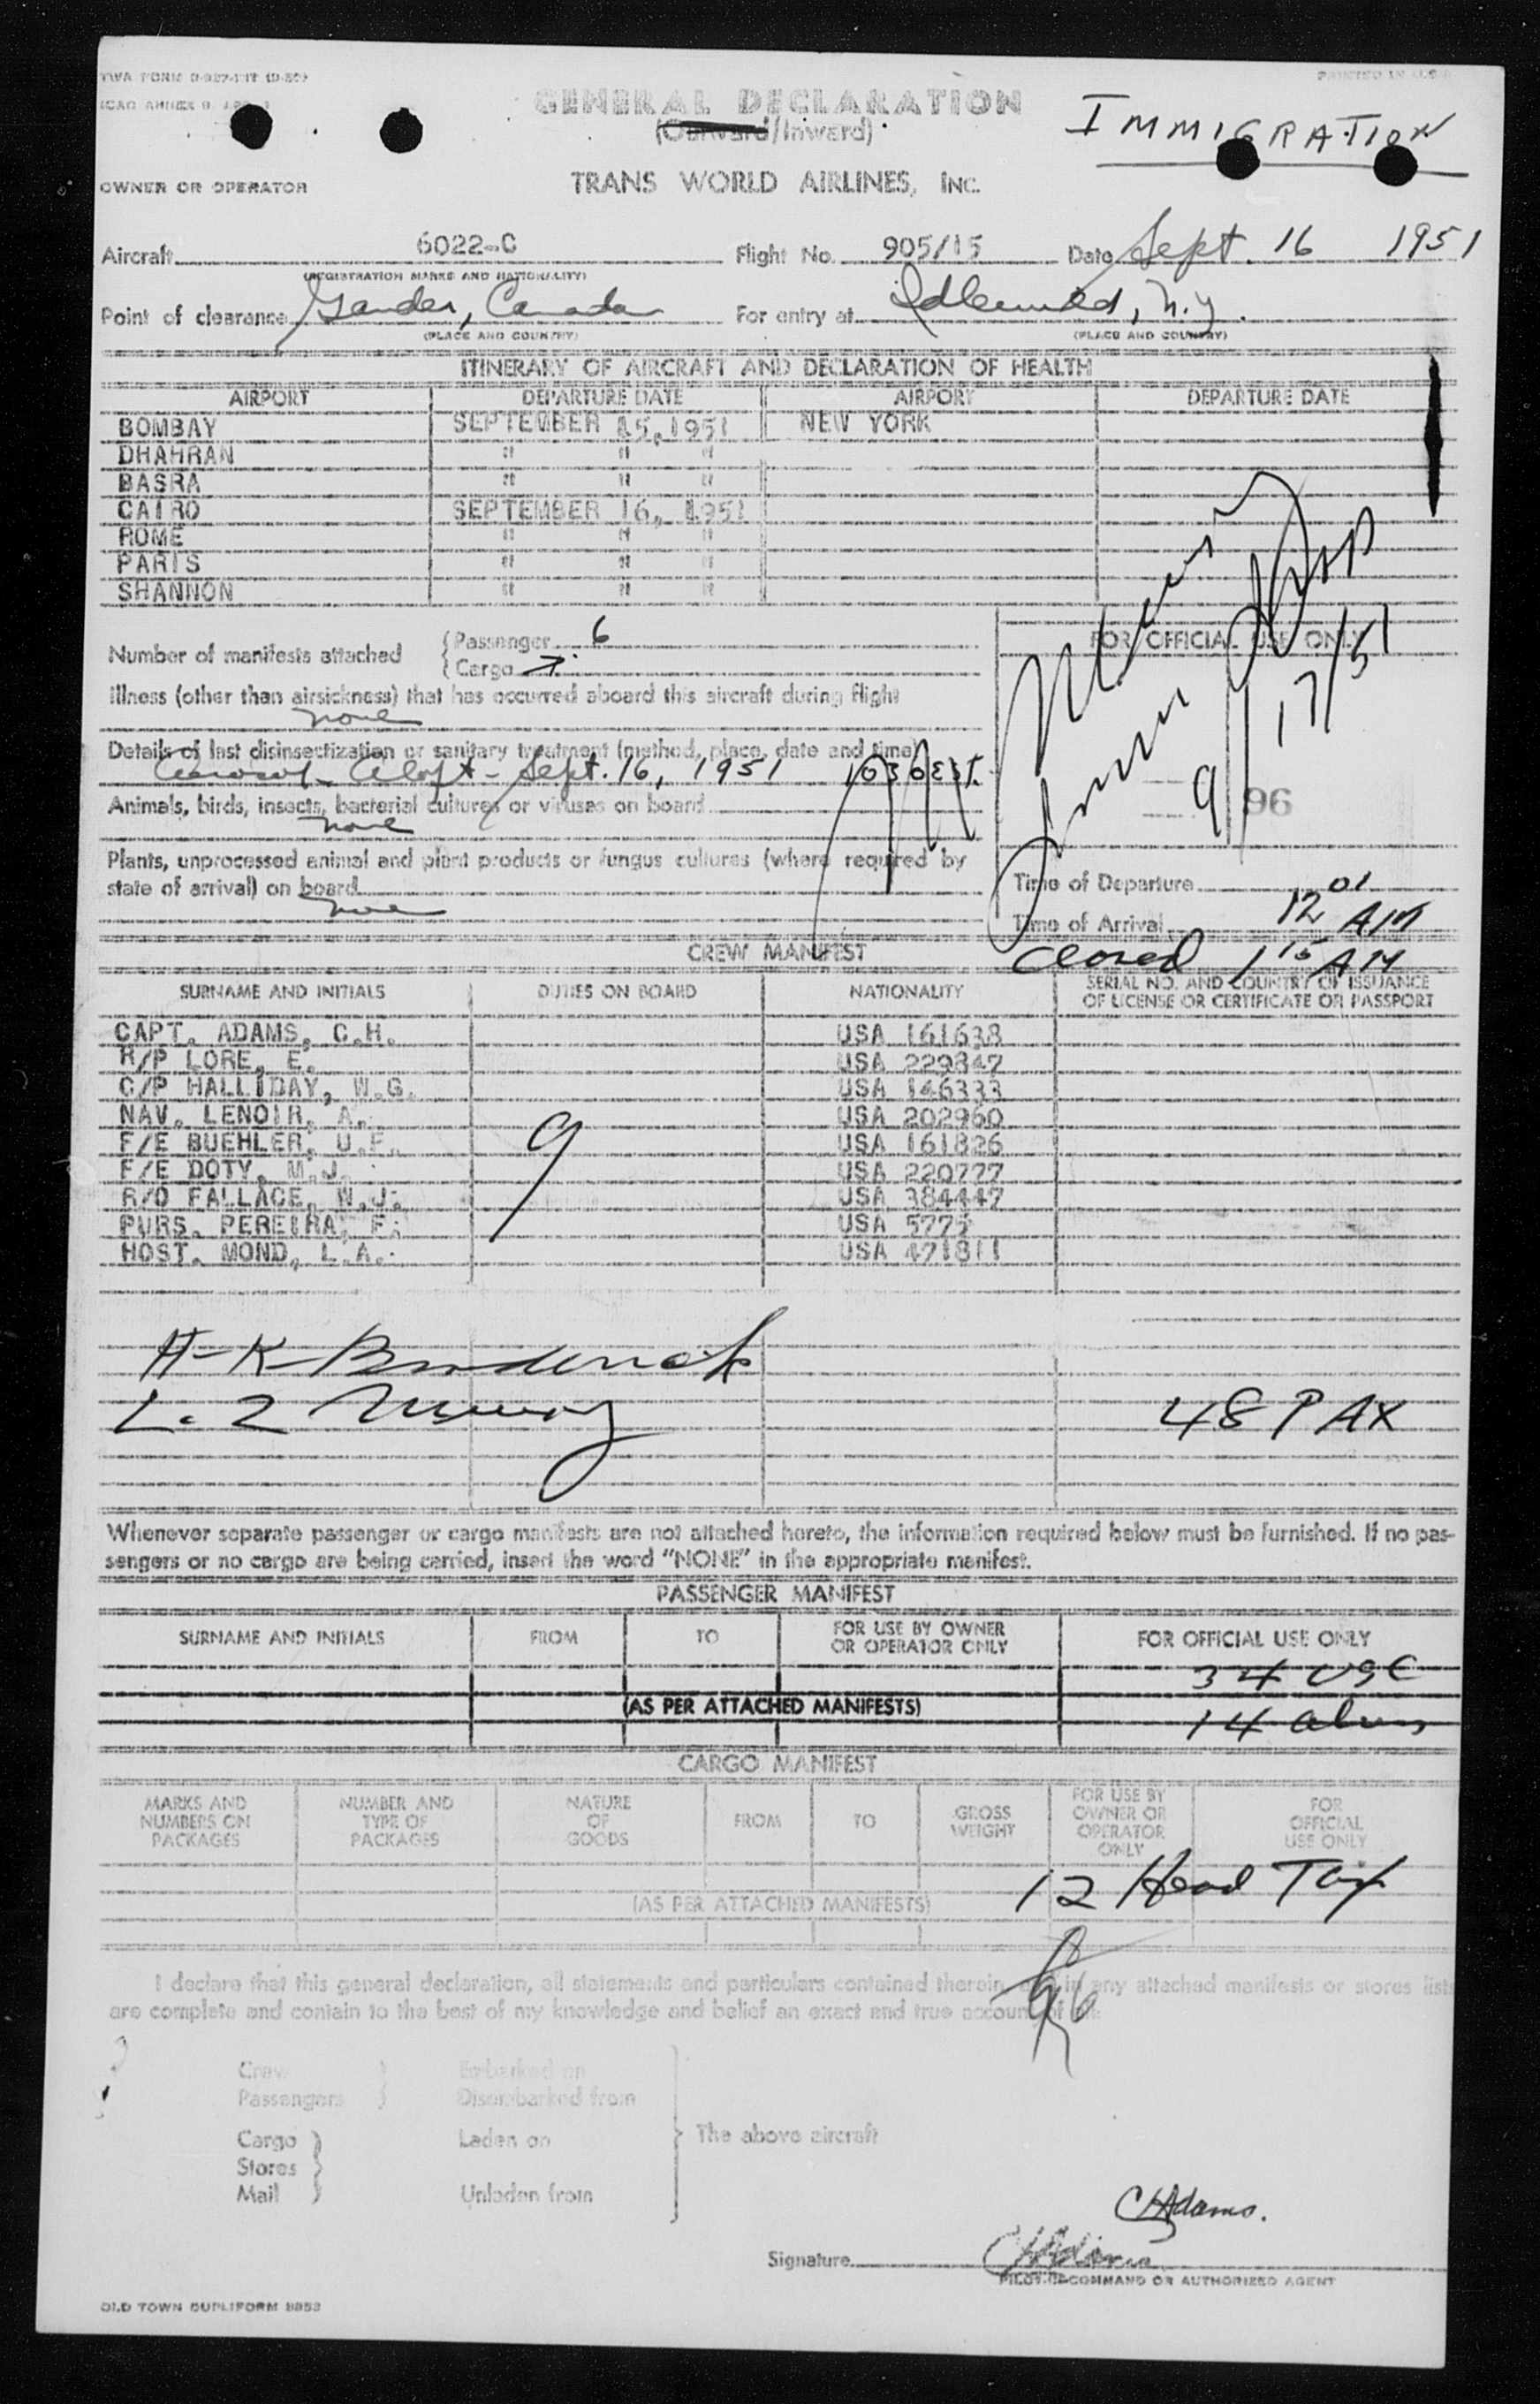 TWA FORM
PRINTED IN U.S.A.
ICAO ANNEX 9
GENERAL DECLARATION
(Outward/Inward)
IMMIGRATION
OWNER OR OPERATOR
TRANS WORLD AIRLINES, INC.
Aircraft 6022-C Flight No. 905/15 Date Sept. 16 1951
(REGISTRATION MARKS AND NATIONALITY)
Point of clearance Gander, Canada For entry at Idlewild, N.Y.
(PLACE AND COUNTRY) (PLACE AND COUNTRY)
ITINERARY OF AIRCRAFT AND DECLARATION OF HEALTH
AIRPORT DEPARTURE DATE AIRPORT DEPARTURE DATE
BOMBAY SEPTEMBER 15, 1951 NEW YORK
DHAHRAN " " "
BASRA " " "
CAIRO SEPTEMBER 16, 1951
ROME " " "
PARIS " " "
SHANNON " " "
Number of manifests attached
Passenger 6
Cargo 7
FOR OFFICIAL USE ONLY
Illness (other than airsickness) that has occurred aboard this aircraft during flight
none
Details of last disinsectization or sanitary treatment (method, place, date and time)
Aerosol - Aloft - Sept. 16, 1951 1030 EST
Animals, birds, insects, bacterial cultures or viruses on board
none
9/17/51
96
Plants, unprocessed animal and plant products or fungus cultures (where required by
state of arrival) on board
none
Time of Departure
Time of Arrival 12 01 AM
Closed 1 15 AM
CREW MANIFEST
SURNAME AND INITIALS DUTIES ON BOARD NATIONALITY SERIAL NO. AND COUNTRY OF ISSUANCE
OF LICENSE OR CERTIFICATE OR PASSPORT
CAPT. ADAMS, C.H. USA 161638
R/P LORE, E. USA 229847
C/P HALLIDAY, W.G. USA 146333
NAV. LENOIR, A. USA 202960
F/E BUEHLER, U.F. USA 161826
F/E DOTY, M.J. USA 220777
R/O FALLACE, W.J. USA 384447
PURS. PEREIRA, F. USA 5775
HOST. MOND, L.A. USA 471811
9
H-K-Broderick
L. 2
48 PAX
Whenever separate passenger or cargo manifests are not attached hereto, the information required below must be furnished. If no pas-
sengers or no cargo are being carried, insert the word "NONE" in the appropriate manifest.
PASSENGER MANIFEST
SURNAME AND INITIALS FROM TO FOR USE BY OWNER
OR OPERATOR ONLY FOR OFFICIAL USE ONLY
34 USC
(AS PER ATTACHED MANIFESTS)
14 aliens
CARGO MANIFEST
MARKS AND
NUMBERS ON
PACKAGES
NUMBER AND
TYPE OF
PACKAGES
NATURE
OF
GOODS
FROM
TO
GROSS
WEIGHT
FOR USE BY
OWNER OR
OPERATOR
ONLY
FOR
OFFICIAL
USE ONLY
12 Head Tax
(AS PER ATTACHED MANIFESTS)
I declare that this general declaration, all statements and particulars contained therein, and in any attached manifests or stores lists
are complete and contain to the best of my knowledge and belief an exact and true account of all
96
Crew Embarked on
Passengers Disembarked from
Cargo Laden on The above aircraft
Stores
Mail Unladen from
CHAdams.
Signature CHAdams
PILOT-IN-COMMAND OR AUTHORIZED AGENT
OLD TOWN DUPLIFORM 8853